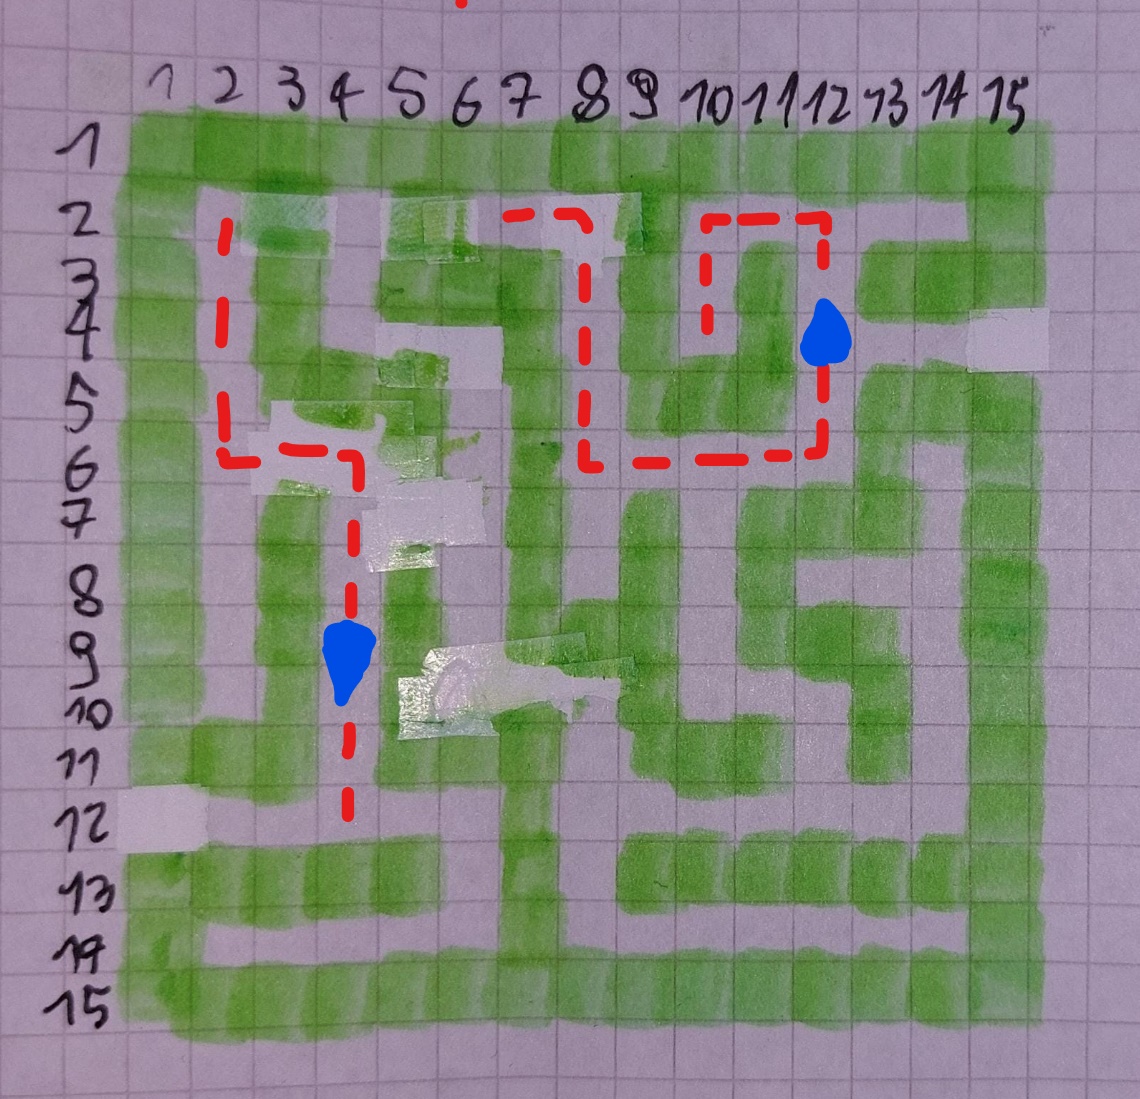 1 2 3 4 5 6 7 8 9 10 11 12 13 14 15
1
2
3
4
5
6
7
8
9
10
11
12
13
14
15